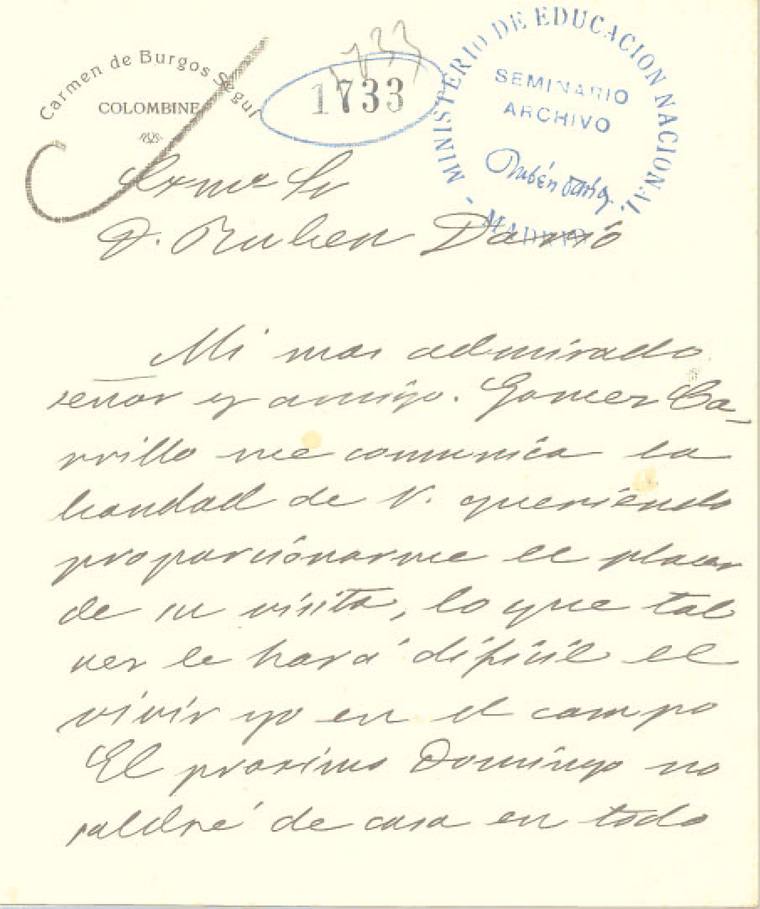 Carmen de Burgos Seguí
COLOMBINE
1733
1733
MINISTERIO DE EDUCACION NACIONAL - MADRID -
SEMINARIO
ARCHIVO
Rubén Darío
Exmo Sr
D. Ruben Dario
Mi mas admirado
señor y amigo. Gomez Ca-
rrillo me comunica la
bondad de V. queriendo
proporcionarme el placer
de su visita, lo que tal
vez le hará dificil el
vivir yo en el campo
El proximo Domingo no
saldré de casa en todo